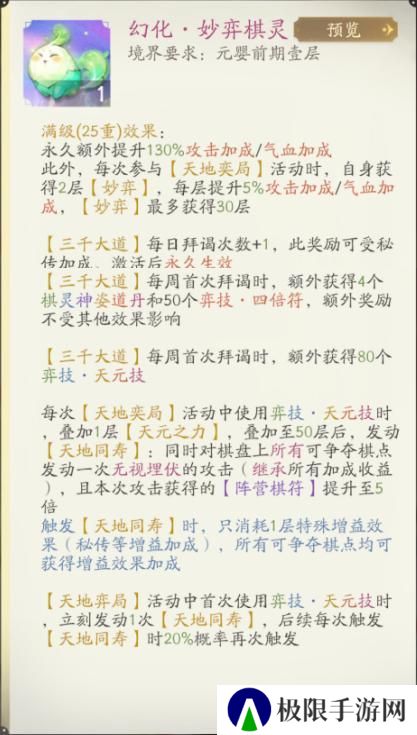 幻化·妙弈棋灵
预览
境界要求：元婴前期壹层
1
满级(25重)效果：
永久额外提升130%攻击加成/气血加成
此外，每次参与【天地奕局】活动时，自身获
得2层【妙弈】，每层提升5%攻击加成/气血加
成，【妙弈】最多获得30层
【三千大道】每日拜谒次数+1，此奖励可受秘
传加成，激活后永久生效
【三千大道】每周首次拜谒时，额外获得4个
棋灵神姿道丹和50个弈技·四倍符，额外奖励
不受其他效果影响
【三千大道】每周首次拜谒时，额外获得80个
弈技·天元技
每次【天地奕局】活动中使用弈技·天元技时
，叠加1层【天元之力】，叠加至50层后，发动
【天地同寿】：同时对棋盘上所有可争夺棋点
发动一次无视埋伏的攻击（继承所有加成收益
），且本次攻击获得的【阵营棋符】提升至5
倍
触发【天地同寿】时，只消耗1层特殊增益效
果（秘传等增益加成），所有可争夺棋点均可
获得增益效果加成
【天地弈局】活动中首次使用弈技·天元技时
，立刻发动1次【天地同寿】，后续每次触发
【天地同寿】时20%概率再次触发
极限手游网